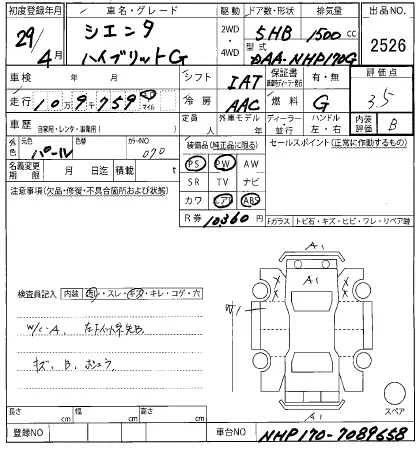 初度登録年月 車名・グレード 駆動 ドア数・形状 排気量 出品NO.
29/4月 シエンタ ハイブリットG 2WD・4WD 5HB 1500 cc 2526
型式 DAA-NHP170G
車検 年 月 シフト IAT 保証書 有・無 評価点 3.5
走行 109759 マイル 冷房 AAC 燃料 G
車歴 自家用・レンタ・事業用( ) 定員 人 外車モデル 年 ディーラー・並行 ハンドル 左・右 内装評価 B
外色 元色 パール 色替 カラーNO 070
名義変更期限 月 日迄 積載 t
装備品(純正品に限る) セールスポイント(正常に作動するもの)
PS PW AW
SR TV ナビ
カワ エアB ABS
R券 10360円
注意事項(欠品・修復・不具合箇所および状態)
Fガラス トビ石・キズ・ヒビ・ワレ・リペア跡
検査員記入 内装 ・スレ・キズ・キレ・コゲ・穴
A1
A1
W1
A1
スペア
長さ cm 幅 cm 高さ cm
登録NO 車台NO NHP170-7089658